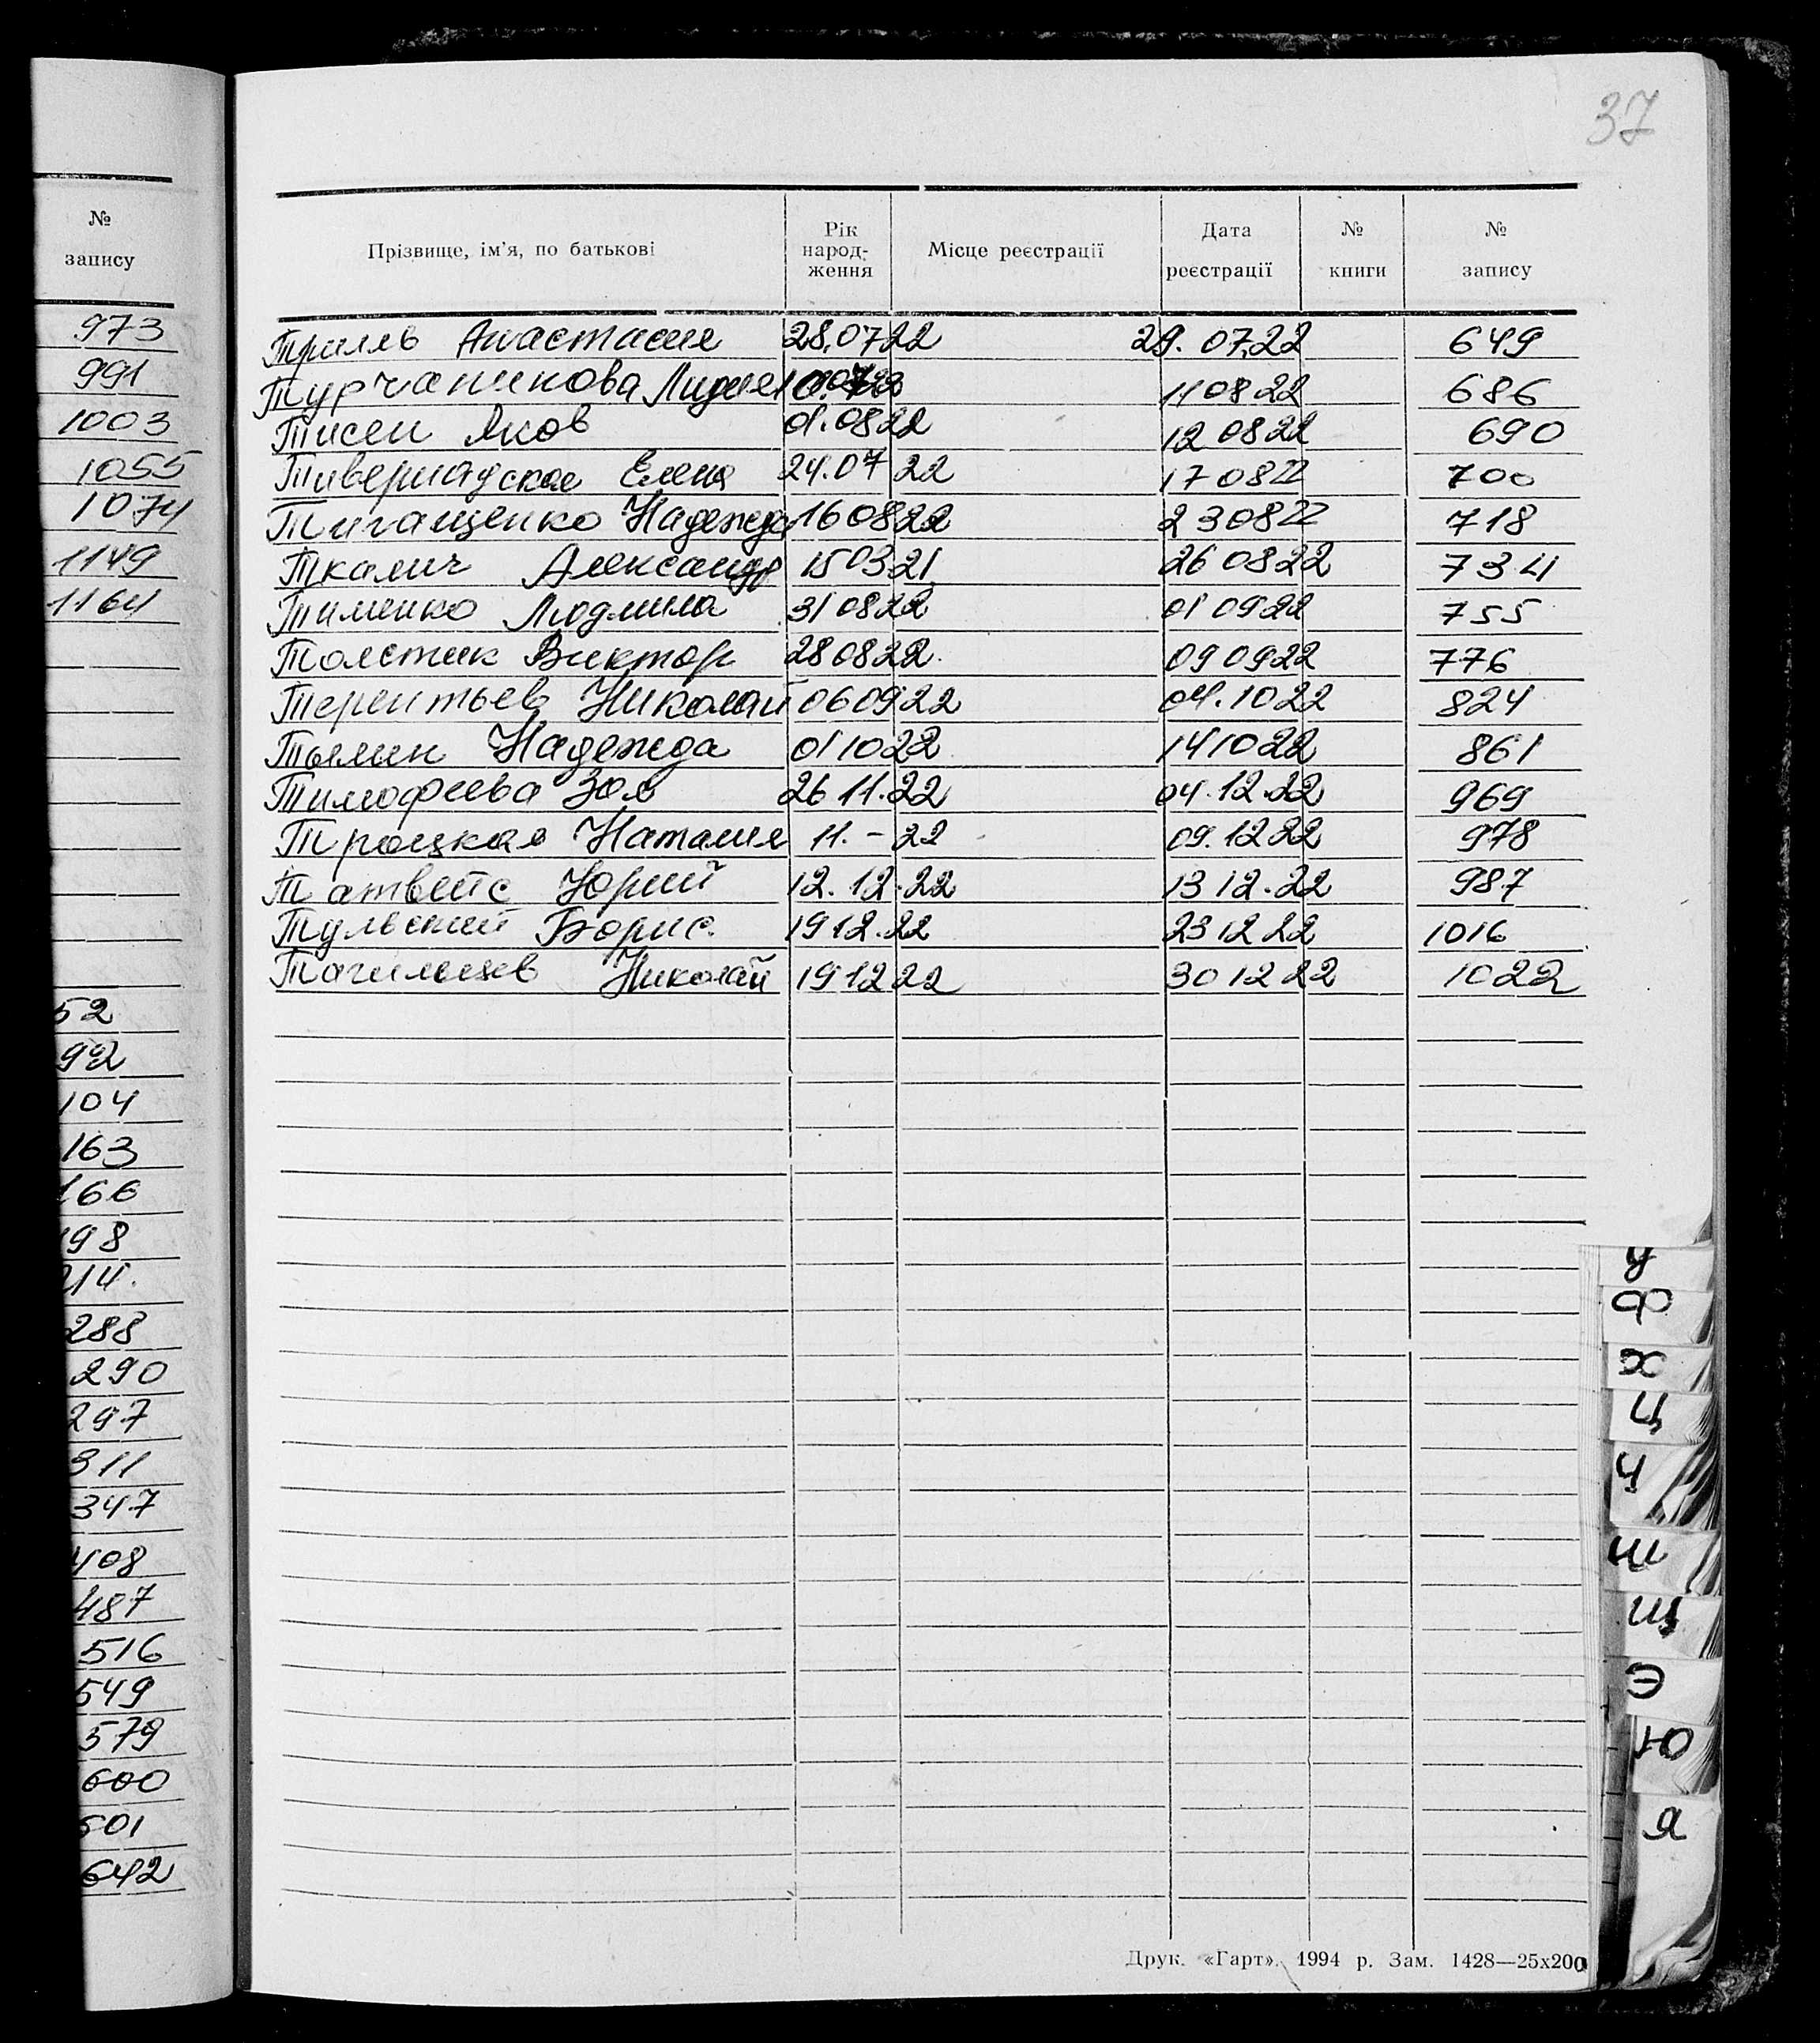 №
запису
973
991
1003
1055
1074
1149
1164
52
92
104
163
166
198
214.
288
290
297
311
347
408
487
516
549
579
600
601
642
37
Прізвище, ім'я, по батькові Рік народ-ження Місце реєстрації Дата реєстрації № книги № запису
Триль Анастасия 28.0722 29.07.22 649
Турчанинова Лидия 110822 686
Тисен Яков 01.0822 120822 690
Тивериадская Елена 24.07 22 170822 700
Тиганщенко Надежда 160822 230822 718
Ткалич Александр 150321 260822 734
Тименко Людмила 310822 010922 755
Толстик Виктор 280822. 090922 776
Терентьев Николай 060922 04.1022 824
Тылик Надежда 011022 141022 861
Тимофеева Зоя 26 11.22 04.12.22 969
Троцкая Наталия 11.-22 09.1222 978
Татвейс Юрий 12.12.22 1312.22 987
Тульский Борис. 1912.22 231222 1016
Тагильцев Николай 191222 301222 1022
У
Ф
Х
Ц
Ч
Ш
Щ
Э
Ю
Я
Друк. «Гарт». 1994 р. Зам. 1428—25х200